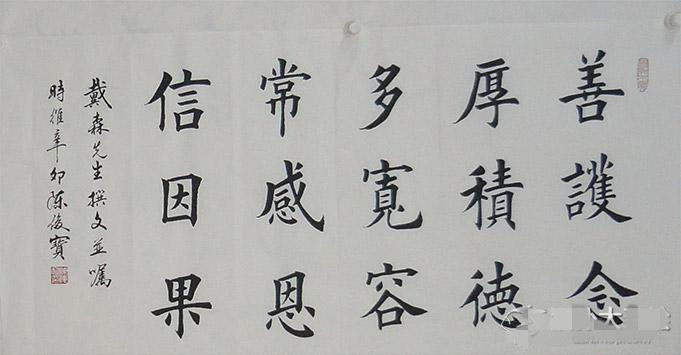 善護念
厚積德
多寬容
常感恩
信因果
戴森先生撰文並嘱
時維辛卯陈俊寶